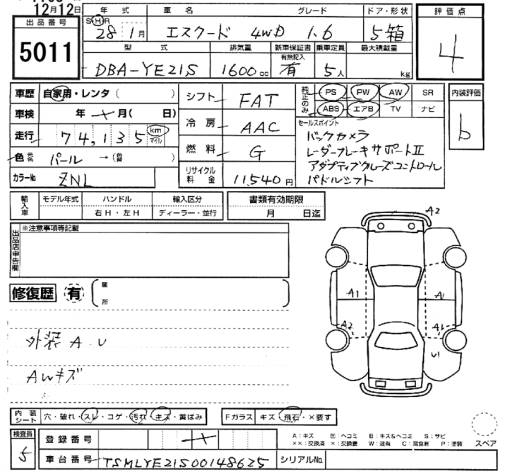 12月12日
出品番号
5011
年式 グレード ドア・形状
SHR 28年1月 エスクード 4WD 1.6 5箱
型式 排気量 新車保証書 乗車定員 最大積載量
有無記入
DBA-YE21S 1600cc 有 5人 kg
評価点
4
車歴 自家用・レンタ( )
車検 年 月( 日)
走行 74,135 km マイル
色 パール → (替)
カラーNo ZNL
シフト FAT
冷房 AAC
燃料 G
リサイクル料金 11,540円
純正のみ
PS PW AW SR
ABS エアB TV ナビ
セールスポイント
バックカメラ
レーダーブレーキサポートⅡ
アダプティブクルーズコントロール
パドルシフト
内装評価
b
輸入車
モデル年式 ハンドル 輸入区分
右H・左H ディーラー・並行
書類有効期限
月 日迄
※注意事項等記載
修復歴 有
箇所
外装 A U
AWキズ
A2
A1 A1
A2 A1
U1
内装シート 穴・破れ・スレ・コゲ・汚れ・キズ・黄ばみ
Fガラス キズ・飛石・×要す
検査員
登録番号
車台番号 TSMLYE21S00148625
シリアルNo.
A:キズ U:ヘコミ B:キズ&ヘコミ S:サビ
××:交換済 ×:要交換 W:波有 C:腐食 P:塗装
スペア